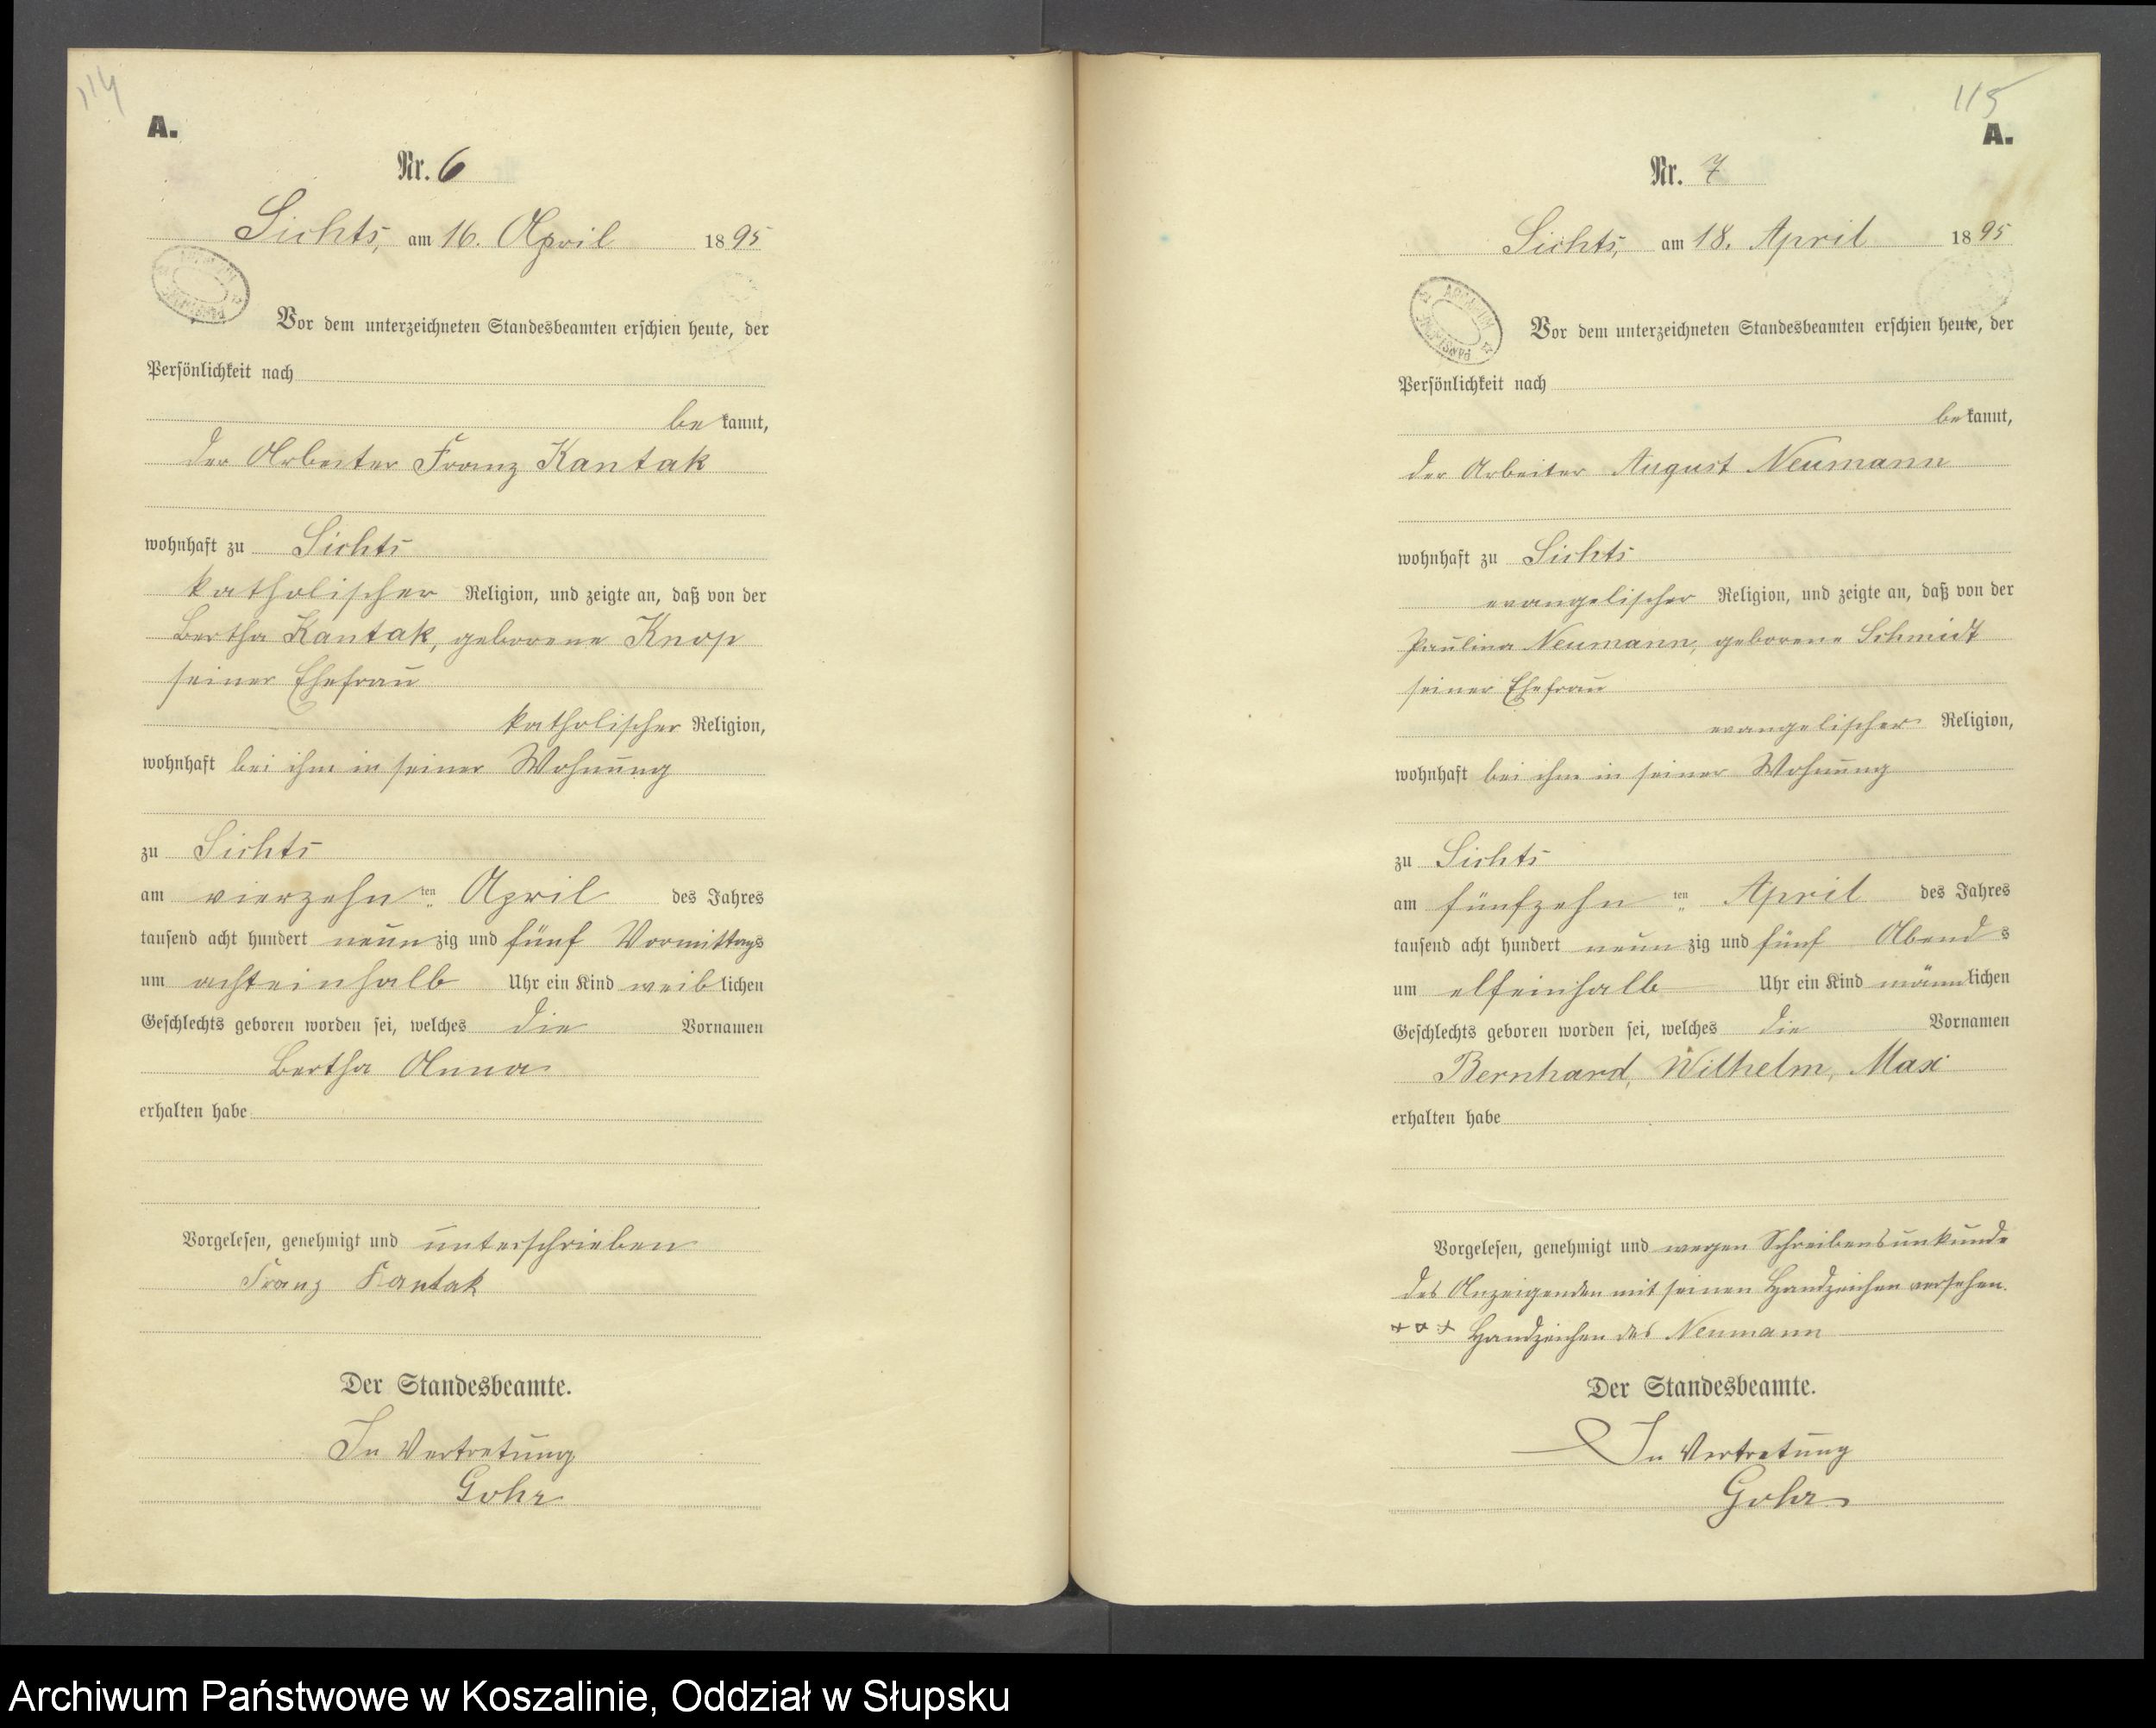 114
A.
Nr. 6
Sichts, am 16. April 1895
Vor dem unterzeichneten Standesbeamten erschien heute, der
Persönlichkeit nach
bekannt,
der Arbeiter Franz Kantak
wohnhaft zu Sichts
katholischer Religion, und zeigte an, daß von der
Bertha Kantak, geborene Knop
seiner Ehefrau
katholischer Religion,
wohnhaft bei ihm in seiner Wohnung
zu Sichts
am vierzehnten April des Jahres
tausend acht hundert neunzig und fünf Vormittags
um achteinhalb Uhr ein Kind weiblichen
Geschlechts geboren worden sei, welches die Vornamen
Bertha Anna
erhalten habe
Vorgelesen, genehmigt und unterschrieben
Franz Kantak
Der Standesbeamte.
In Vertretung
Gohr
115
A.
Nr. 7
Sichts, am 18. April 1895
ARCHIWUM PAŃSTW
Vor dem unterzeichneten Standesbeamten erschien heute, der
Persönlichkeit nach
bekannt,
der Arbeiter August Neumann
wohnhaft zu Sichts
evangelischer Religion, und zeigte an, daß von der
Paulina Neumann, geborene Schmidt
seiner Ehefrau
evangelischer Religion,
wohnhaft bei ihm in seiner Wohnung
zu Sichts
am fünfzehnten April des Jahres
tausend acht hundert neunzig und fünf Abends
um elfeinhalb Uhr ein Kind männlichen
Geschlechts geboren worden sei, welches die Vornamen
Bernhard, Wilhelm, Max
erhalten habe
Vorgelesen, genehmigt und wegen Schreibensunkunde
des Anzeigenden mit seinen Handzeichen versehen.
+++ Handzeichen des Neumann
Der Standesbeamte.
In Vertretung
Gohr
Archiwum Państwowe w Koszalinie, Oddział w Słupsku